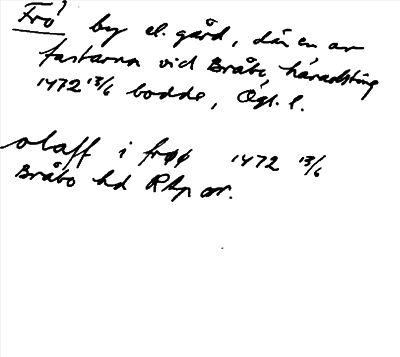 Frö? by el. gård, där en av
fastarna vid Bråbo häradsting
1472 13/6 bodde, Ögl. l.
olaff i frøø 1472 13/6
Bråbo hd Rhp or.